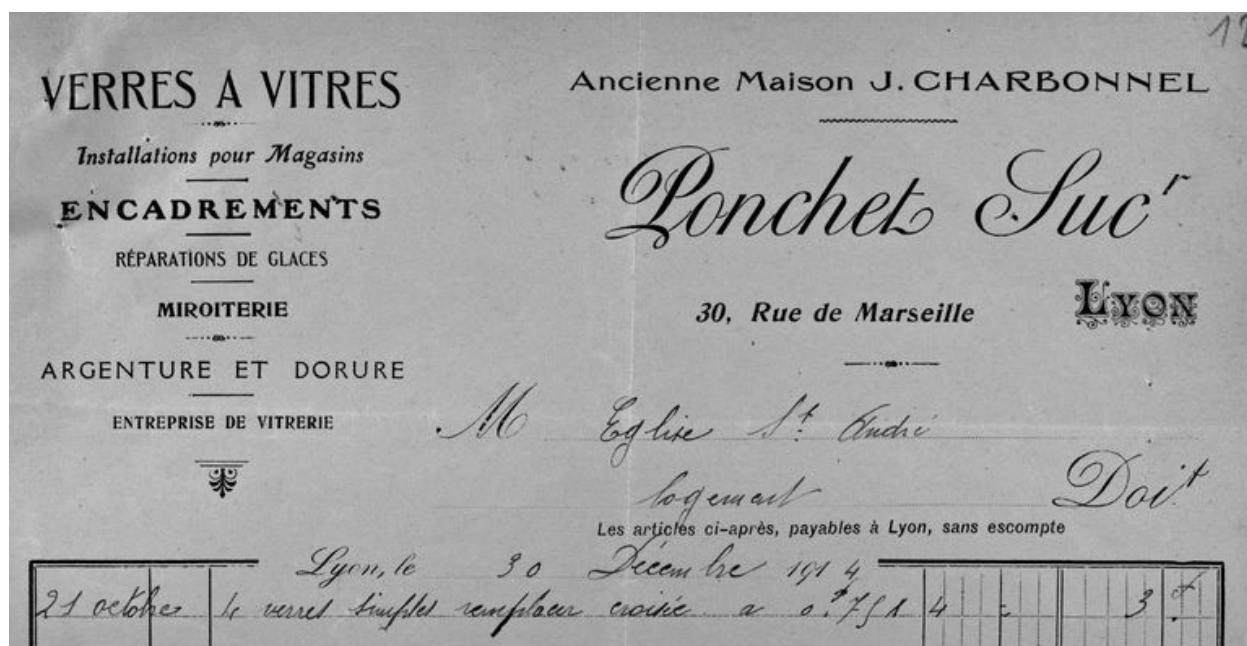 12
VERRES A VITRES
Installations pour Magasins
ENCADREMENTS
RÉPARATIONS DE GLACES
MIROITERIE
ARGENTURE ET DORURE
ENTREPRISE DE VITRERIE
Ancienne Maison J. CHARBONNEL
Ponchet Sucr
30, Rue de Marseille LYON
M Eglise St. André
logement Doit
Les articles ci-après, payables à Lyon, sans escompte
Lyon, le 30 Décembre 1914
21 octobre 4 verres simples remplacer croisée a 0f.75 4 = 3 f